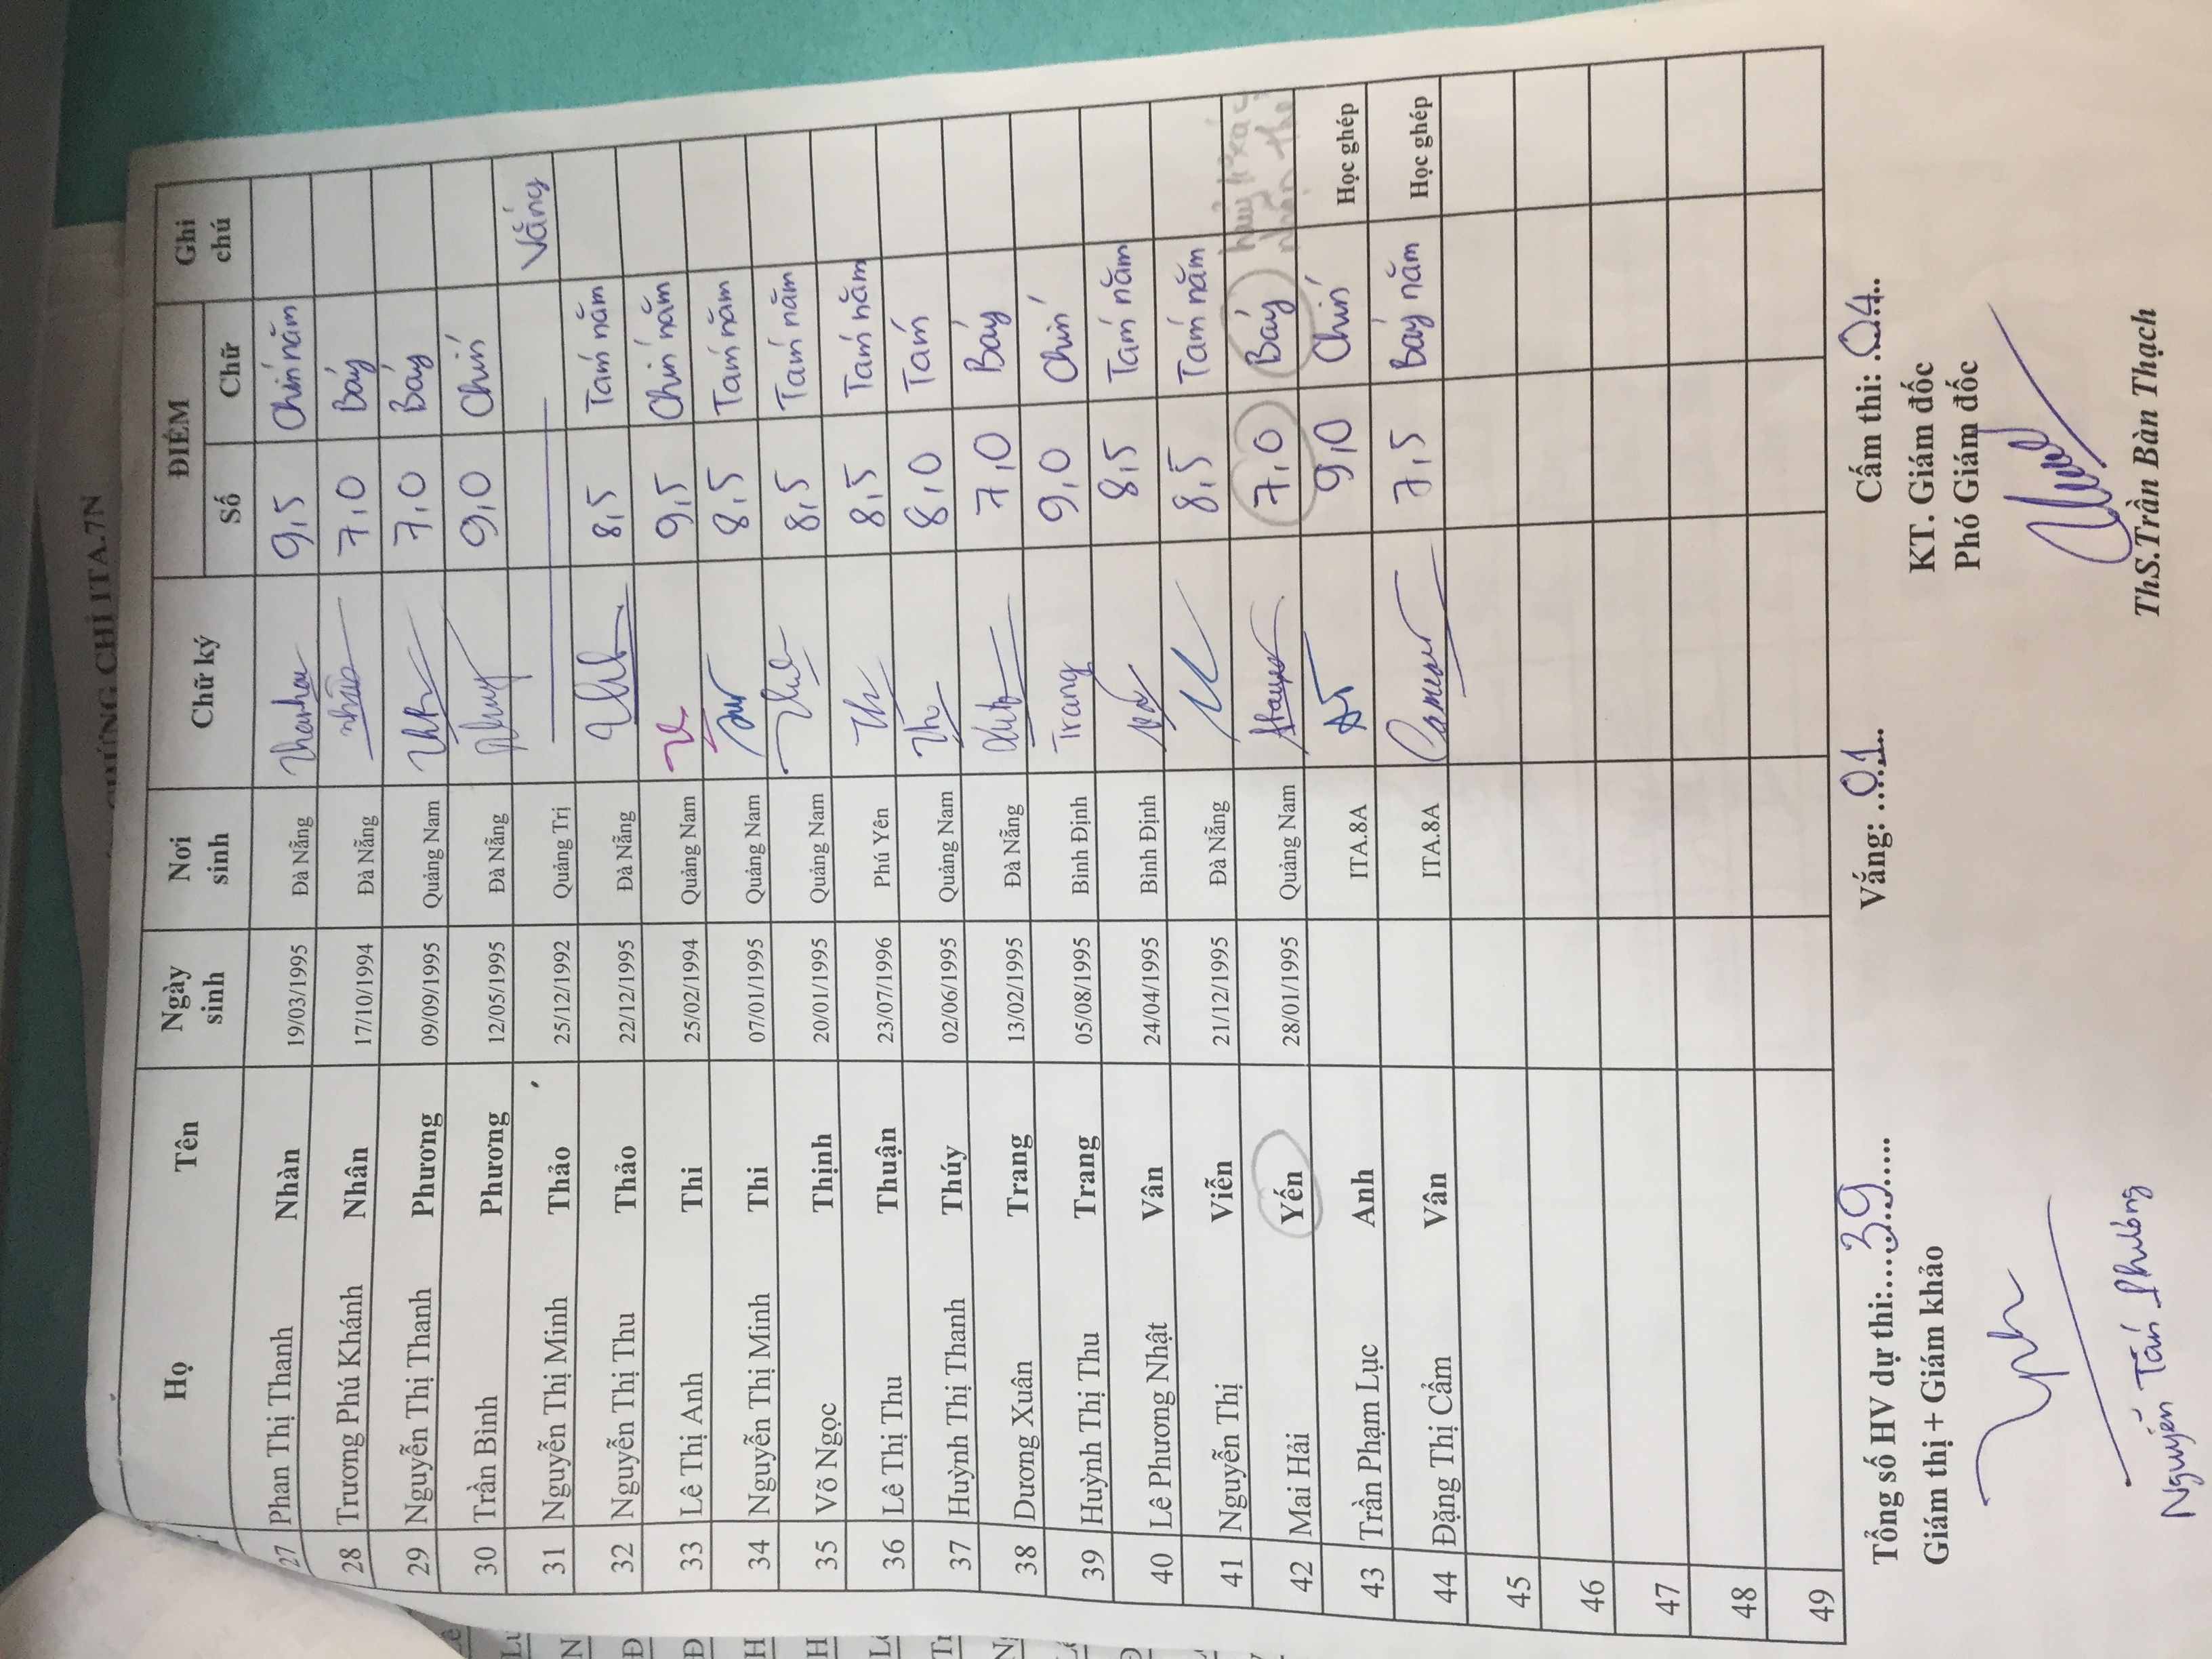 CHỨNG CHỈ ITA.7N
Họ Tên Ngày sinh Nơi sinh Chữ ký ĐIỂM Ghi chú
Số Chữ
27 Phan Thị Thanh Nhàn 19/03/1995 Đà Nẵng 9,5 Chín năm
28 Trương Phú Khánh Nhân 17/10/1994 Đà Nẵng 7,0 Bảy
29 Nguyễn Thị Thanh Phương 09/09/1995 Quảng Nam 7,0 Bảy
30 Trần Bình Phương 12/05/1995 Đà Nẵng 9,0 Chín
31 Nguyễn Thị Minh Thảo 25/12/1992 Quảng Trị Vắng
32 Nguyễn Thị Thu Thảo 22/12/1995 Đà Nẵng 8,5 Tám năm
33 Lê Thị Anh Thi 25/02/1994 Quảng Nam 9,5 Chín năm
34 Nguyễn Thị Minh Thi 07/01/1995 Quảng Nam 8,5 Tám năm
35 Võ Ngọc Thịnh 20/01/1995 Quảng Nam 8,5 Tám năm
36 Lê Thị Thu Thuận 23/07/1996 Phú Yên 8,5 Tám năm
37 Huỳnh Thị Thanh Thúy 02/06/1995 Quảng Nam 8,0 Tám
38 Dương Xuân Trang 13/02/1995 Đà Nẵng 7,0 Bảy
39 Huỳnh Thị Thu Trang 05/08/1995 Bình Định Trang 9,0 Chín
40 Lê Phương Nhật Vân 24/04/1995 Bình Định 8,5 Tám năm
41 Nguyễn Thị Viễn 21/12/1995 Đà Nẵng 8,5 Tám năm
42 Mai Hải Yến 28/01/1995 Quảng Nam 7,0 Bảy
43 Trần Phạm Lục Anh ITA.8A 9,0 Chín Học ghép
44 Đặng Thị Cẩm Vân ITA.8A 7,5 Bảy năm Học ghép
45
46
47
48
49
Tổng số HV dự thi: 39 Vắng: 01 Cấm thi: 04
Giám thị + Giám khảo KT. Giám đốc
Phó Giám đốc
Nguyễn Tấn Phương ThS.Trần Bàn Thạch